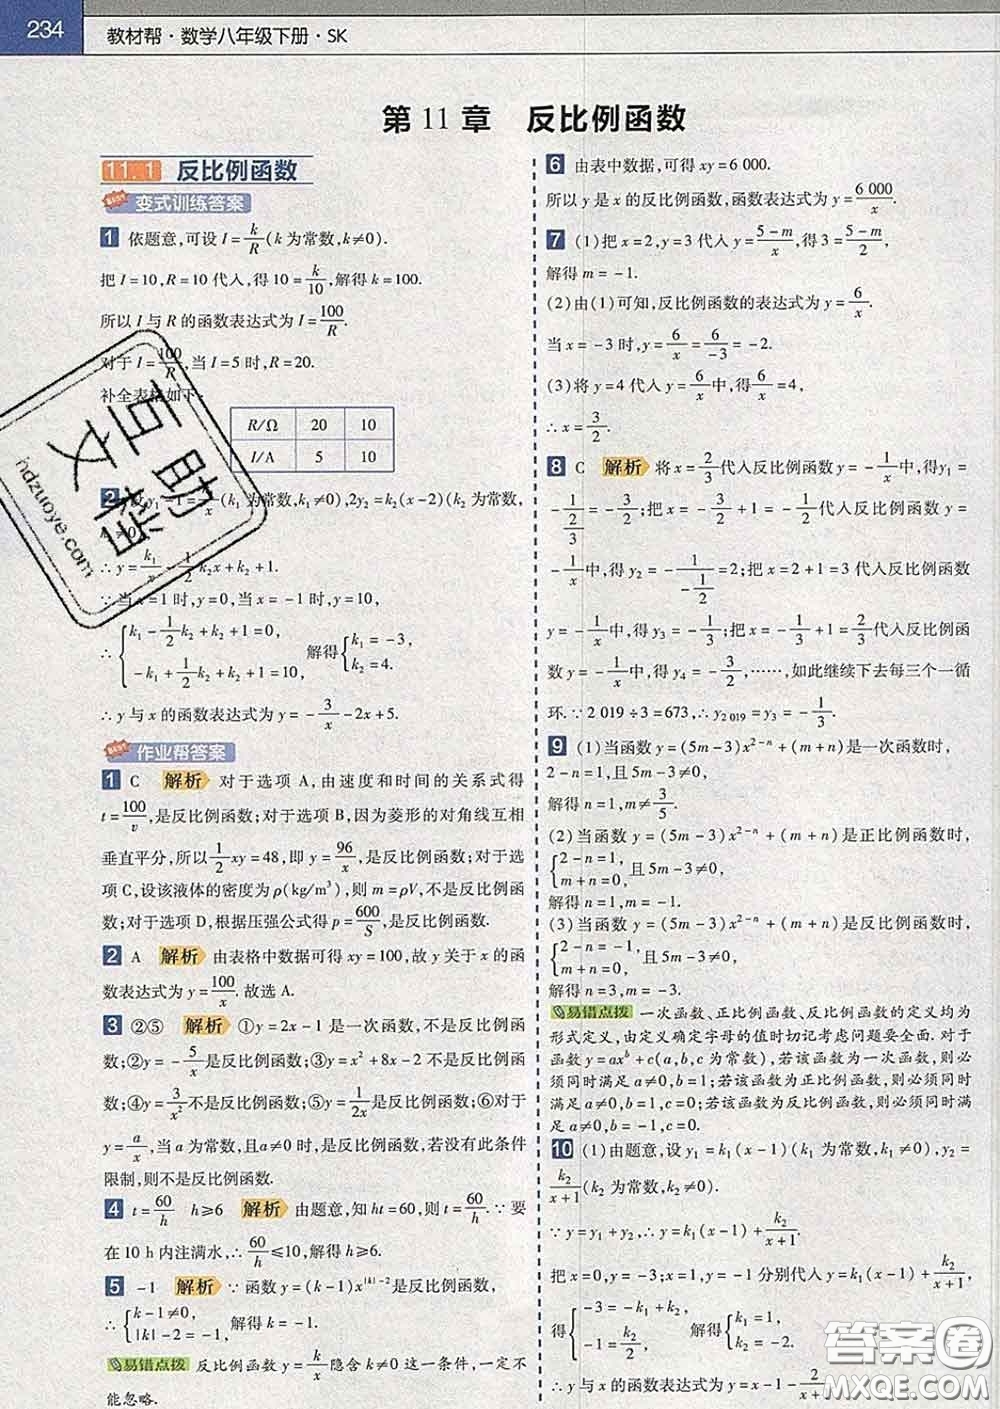 234
教材帮·数学八年级下册·SK
第 11 章 反比例函数
11.1 反比例函数
变式训练答案
1 依题意,可设 I=k/R(k 为常数,k≠0).
把 I=10,R=10 代入,得 10=k/10,解得 k=100.
所以 I 与 R 的函数表达式为 I=100/R.
对于 I=100/R,当 I=5 时,R=20.
补全表格如下:
R/Ω 20 10
I/A 5 10
2 y₁-1=k₁/x(k₁ 为常数,k₁≠0),2y₂=k₂(x-2)(k₂ 为常数,
k₂≠0),
∴ y=k₁/x-1/2k₂x+k₂+1.
∵ 当 x=1 时,y=0,当 x=-1 时,y=10,
∴ {k₁-1/2k₂+k₂+1=0, -k₁+1/2k₂+k₂+1=10, 解得{k₁=-3, k₂=4.
∴ y 与 x 的函数表达式为 y=-3/x-2x+5.
作业帮答案
1 C 解析 对于选项 A,由速度和时间的关系式得
t=100/v,是反比例函数;对于选项 B,因为菱形的对角线互相
垂直平分,所以1/2xy=48,即 y=96/x,是反比例函数;对于选
项 C,设该液体的密度为 ρ(kg/m³),则 m=ρV,不是反比例函
数;对于选项 D,根据压强公式得 p=600/S,是反比例函数.
2 A 解析 由表格中数据可得 xy=100,故 y 关于 x 的函
数表达式为 y=100/x.故选 A.
3 ②⑤ 解析 ①y=2x-1 是一次函数,不是反比例函
数;②y=-5/x是反比例函数;③y=x²+8x-2 不是反比例函
数;④y=3/x²不是反比例函数;⑤y=1/2x是反比例函数;⑥对于
y=a/x,当 a 为常数,且a≠0 时,是反比例函数,若没有此条件
限制,则不是反比例函数.
4 t=60/h h≥6 解析 由题意,知 ht=60,则 t=60/h.∵ 要
在 10 h 内注满水,∴ 60/h≤10,解得 h≥6.
5 -1 解析 ∵ 函数 y=(k-1)x^|k|-2是反比例函数,
∴ {k-1≠0, |k|-2=-1, 解得 k=-1.
易错点拨 反比例函数 y=k/x隐含 k≠0 这一条件,一定不
能忽略.
6 由表中数据,可得 xy=6 000.
所以 y 是 x 的反比例函数,函数表达式为 y=6 000/x.
7 (1)把 x=2,y=3 代入 y=5-m/x,得 3=5-m/2,
解得 m=-1.
(2)由(1)可知,反比例函数的表达式为 y=6/x.
当 x=-3 时,y=6/x=6/-3=-2.
(3)将 y=4 代入 y=6/x中,得6/x=4,
∴ x=3/2.
8 C 解析 将 x=2/3代入反比例函数 y=-1/x中,得y₁=
-1/(2/3)=-3/2;把 x=-3/2+1=-1/2代入反比例函数 y=
-1/x中,得 y₂=-1/(-1/2)=2;把 x=2+1=3 代入反比例函数
y=-1/x中,得 y₃=-1/3;把 x=-1/3+1=2/3代入反比例函
数 y=-1/x中,得 y₄=-3/2,……,如此继续下去每三个一循
环.∵ 2 019÷3=673,∴ y₂₀₁₉=y₃=-1/3.
9 (1)当函数 y=(5m-3)x²⁻ⁿ+(m+n)是一次函数时,
2-n=1,且5m-3≠0,
解得 n=1,m≠3/5.
(2)当函数 y=(5m-3)x²⁻ⁿ+(m+n)是正比例函数时,
{2-n=1, m+n=0, 且5m-3≠0,
解得 n=1,m=-1.
(3)当函数 y=(5m-3)x²⁻ⁿ+(m+n)是反比例函数时,
{2-n=-1, m+n=0, 且5m-3≠0,
解得 n=3,m=-3.
易错点拨 一次函数、正比例函数、反比例函数的定义均为
形式定义,由定义确定字母的值时切记考虑问题要全面.对于
函数 y=axᵇ+c(a,b,c 为常数),若该函数为一次函数,则必
须同时满足 a≠0,b=1;若该函数为正比例函数,则必须同时
满足 a≠0,b=1,c=0;若该函数为反比例函数,则必须同时满
足 a≠0,b=-1,c=0.
10 (1)由题意,设 y₁=k₁(x-1)(k₁ 为常数,k₁≠0),y₂=
k₂/x+1(k₂ 为常数,k₂≠0).
∵ y=y₁+y₂,∴ y=k₁(x-1)+k₂/x+1.
把 x=0,y=-3;x=1,y=-1 分别代入 y=k₁(x-1)+k₂/x+1,
得{-3=-k₁+k₂, -1=k₂/2, 解得{k₁=1, k₂=-2.
∴ y 与 x 的函数表达式为 y=x-1-2/x+
互助文档
hdzuoye.com
答案圈
MXQE.COM